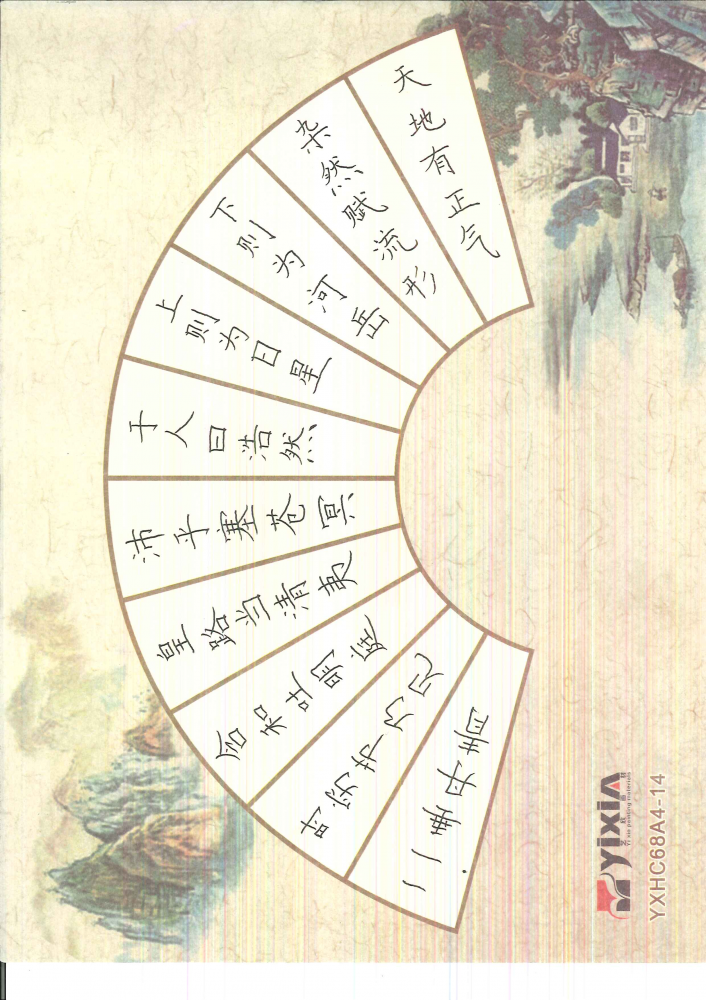 天地有正气
杂然赋流形
下则为河岳
上则为日星
于人曰浩然
沛乎塞苍冥
皇路当清夷
含和吐明庭
时穷节乃见
一一垂丹青
YixiA
Yi xia painting materials
YXHC68A4-14